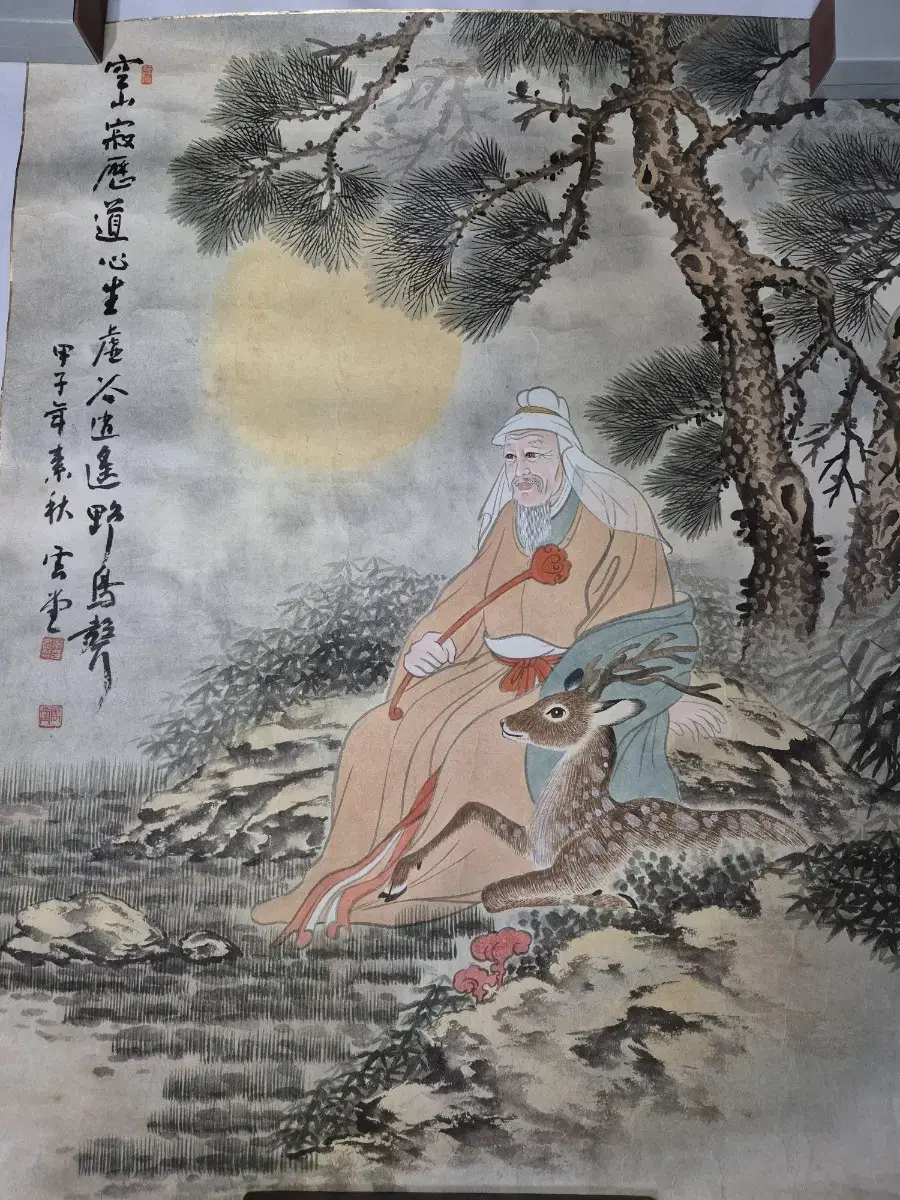 空山寂歷道心生虛谷逍遙野鳥聲
甲子年素秋 雲堂